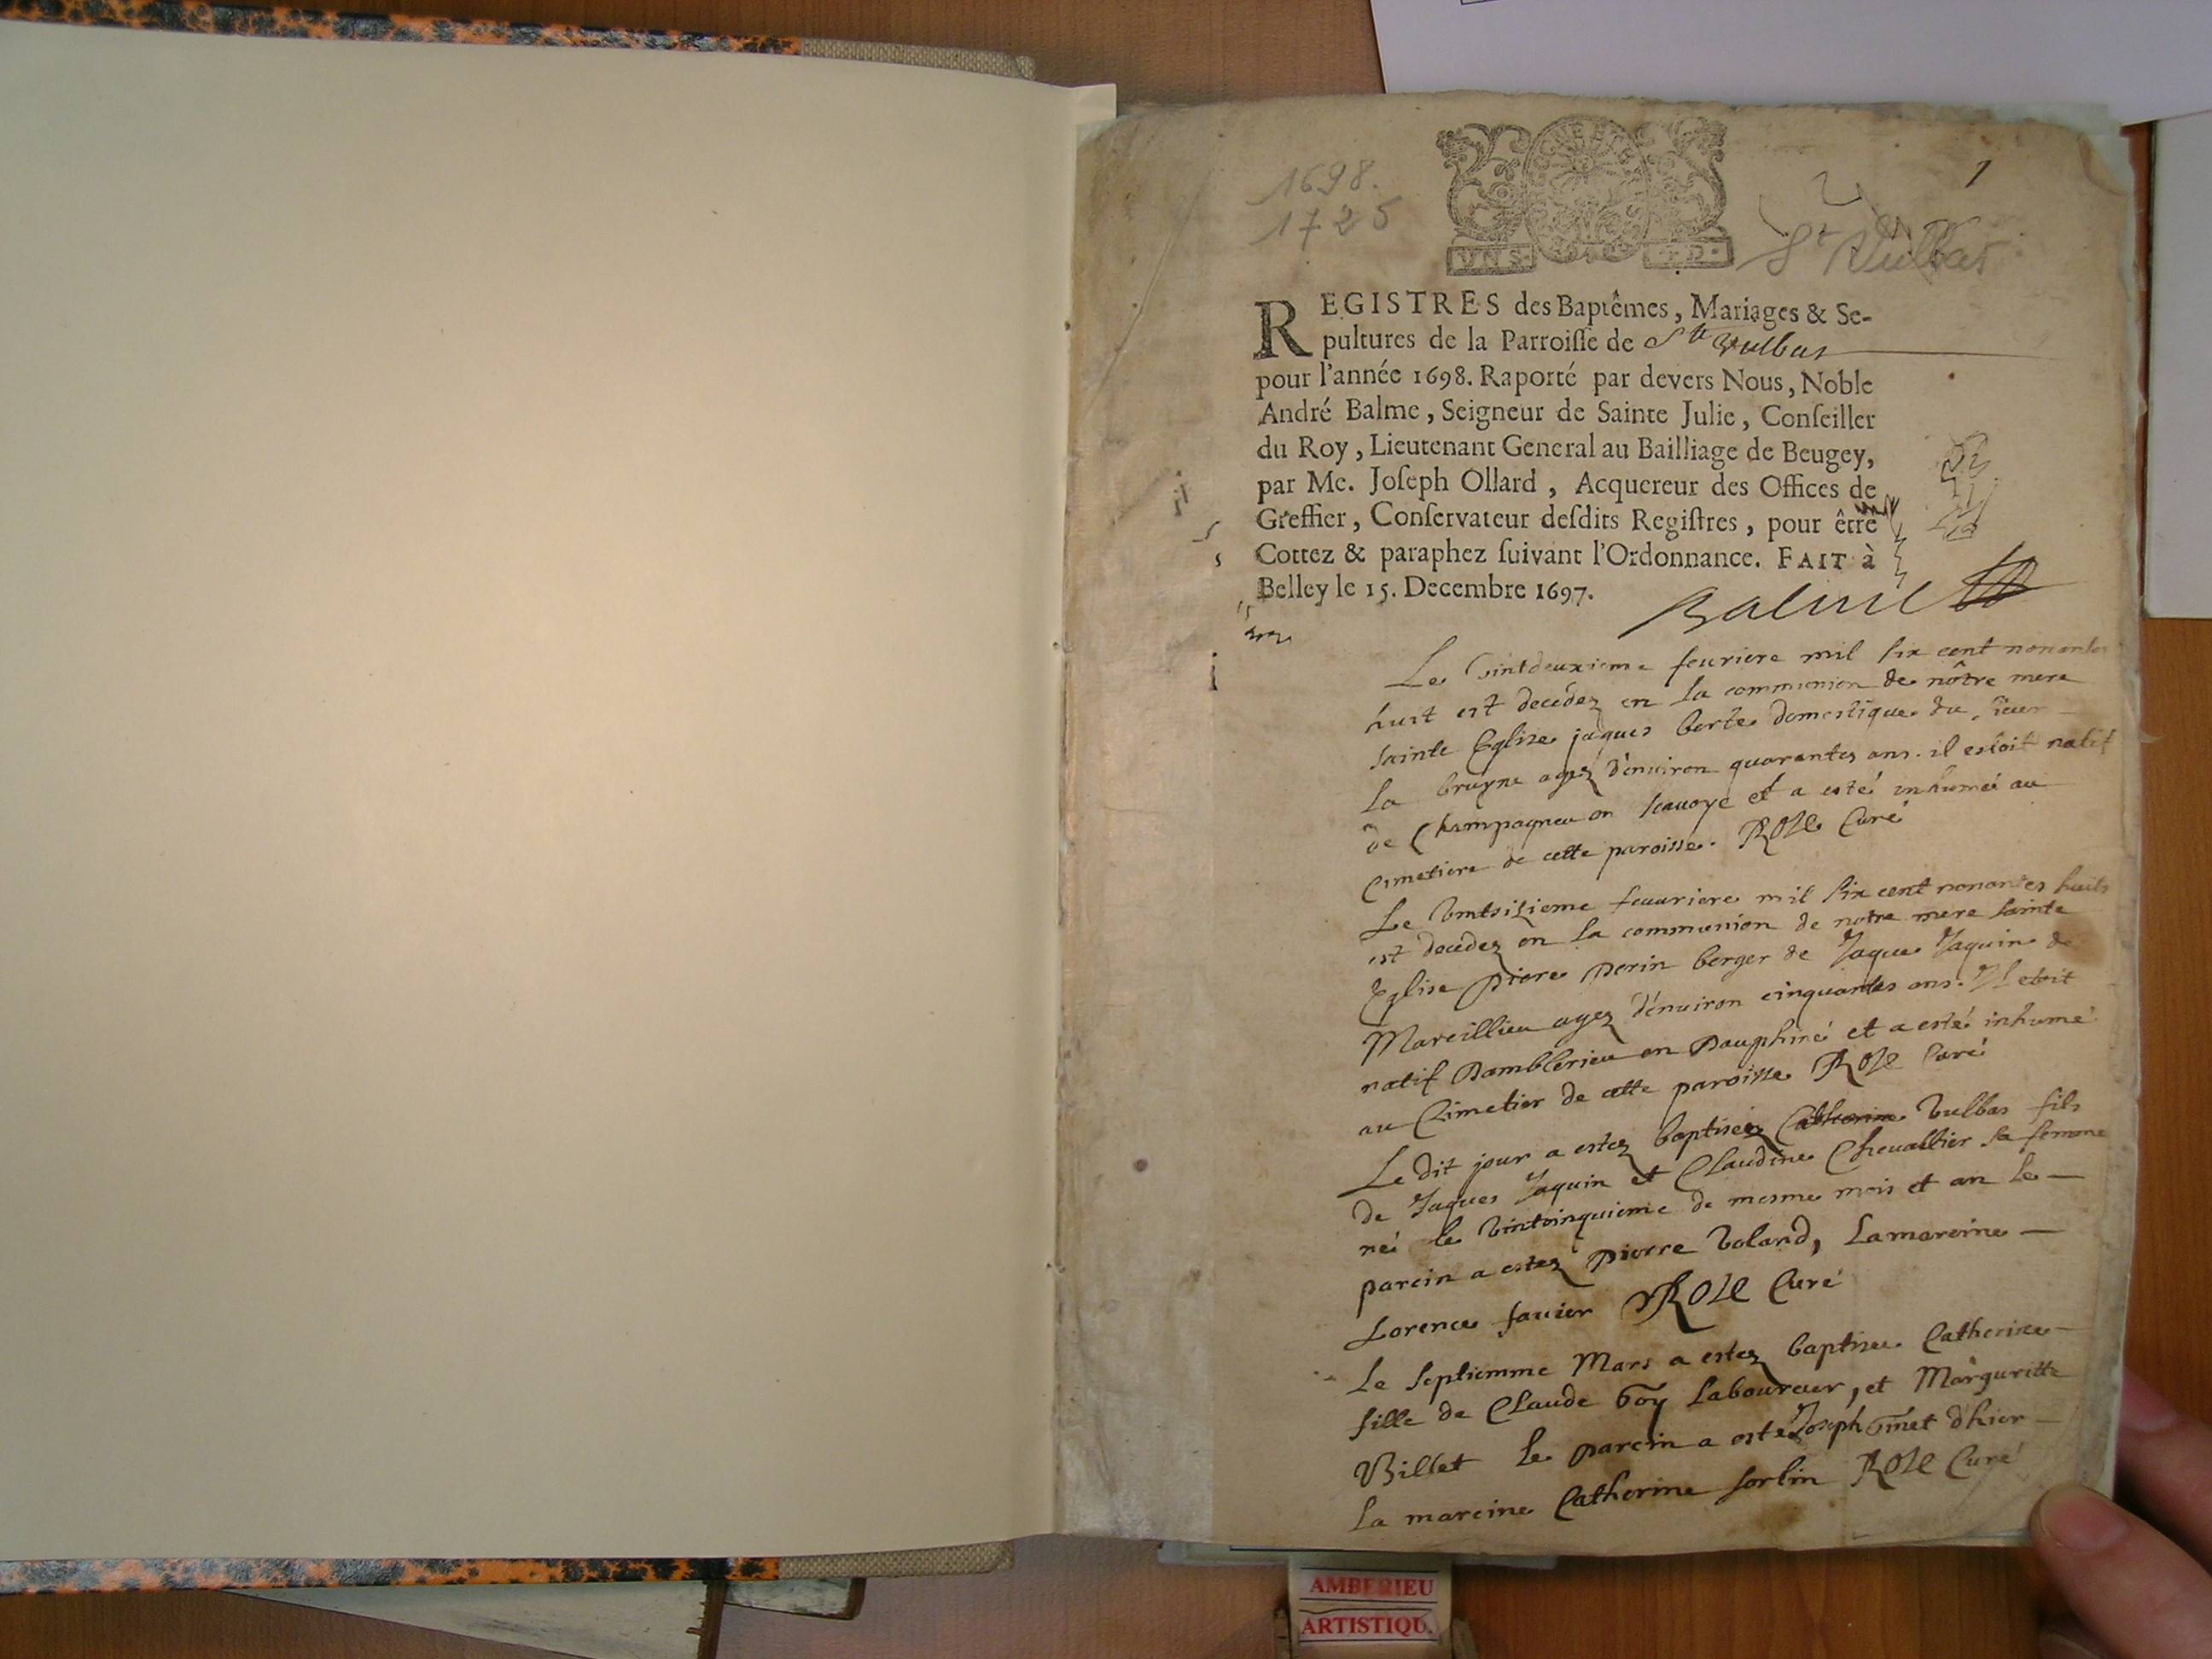 1698.
1725
1
St Vulbas
REGISTRES des Baptêmes, Mariages & Se-
pultures de la Parroiſſe de St Vulbas
pour l'année 1698. Raporté par devers Nous, Noble
André Balme, Seigneur de Sainte Julie, Conſeiller
du Roy, Lieutenant General au Bailliage de Beugey,
par Me. Joſeph Ollard, Acquereur des Offices de
Greffier, Conſervateur deſdits Regiſtres, pour être
Cottez & paraphez ſuivant l'Ordonnance. FAIT à
Belley le 15. Decembre 1697.
Balme
Le vintdeuxieme feuriere mil six cent nonantes
huit est decedez en la communion de nôtre mere
sainte Eglise jaques berte domestique du sieur
la bruyne agez d'enuiron quarantes ans. il estoit natif
de Champagneu en sauoye et a esté inhumé au
Cimetiere de cette paroisse. ROZE Curé
Le vintsizieme feuuriere mil six cent nonantes huits
est decedez en la communion de notre mere sainte
Eglise Piere Perin berger de Jaque Jaquin de
Mareillieu agez d'enuiron cinquantes ans. Il etoit
natif Damblerieu en Dauphiné et a esté inhumé
au Cimetier de cette paroisse ROZE Curé
Le dit jour a estez baptisez Catherine Vulbas fils
de Jaques Jaquin et Claudine Cheuallier sa femme
né le vintcinquieme de mesme mois et an le
parein a estez Pierre Volard, La mareine
Lorence fauier ROZE Curé
Le septiemme Mars a estez baptisee Catherine
fille de Claude Goy Laboureur, et Marguritte
Billet le parein a esté Joseph Ginet d'hier
La mareine Catherine sorlin ROZE Curé
AMBERIEU
ARTISTIQU